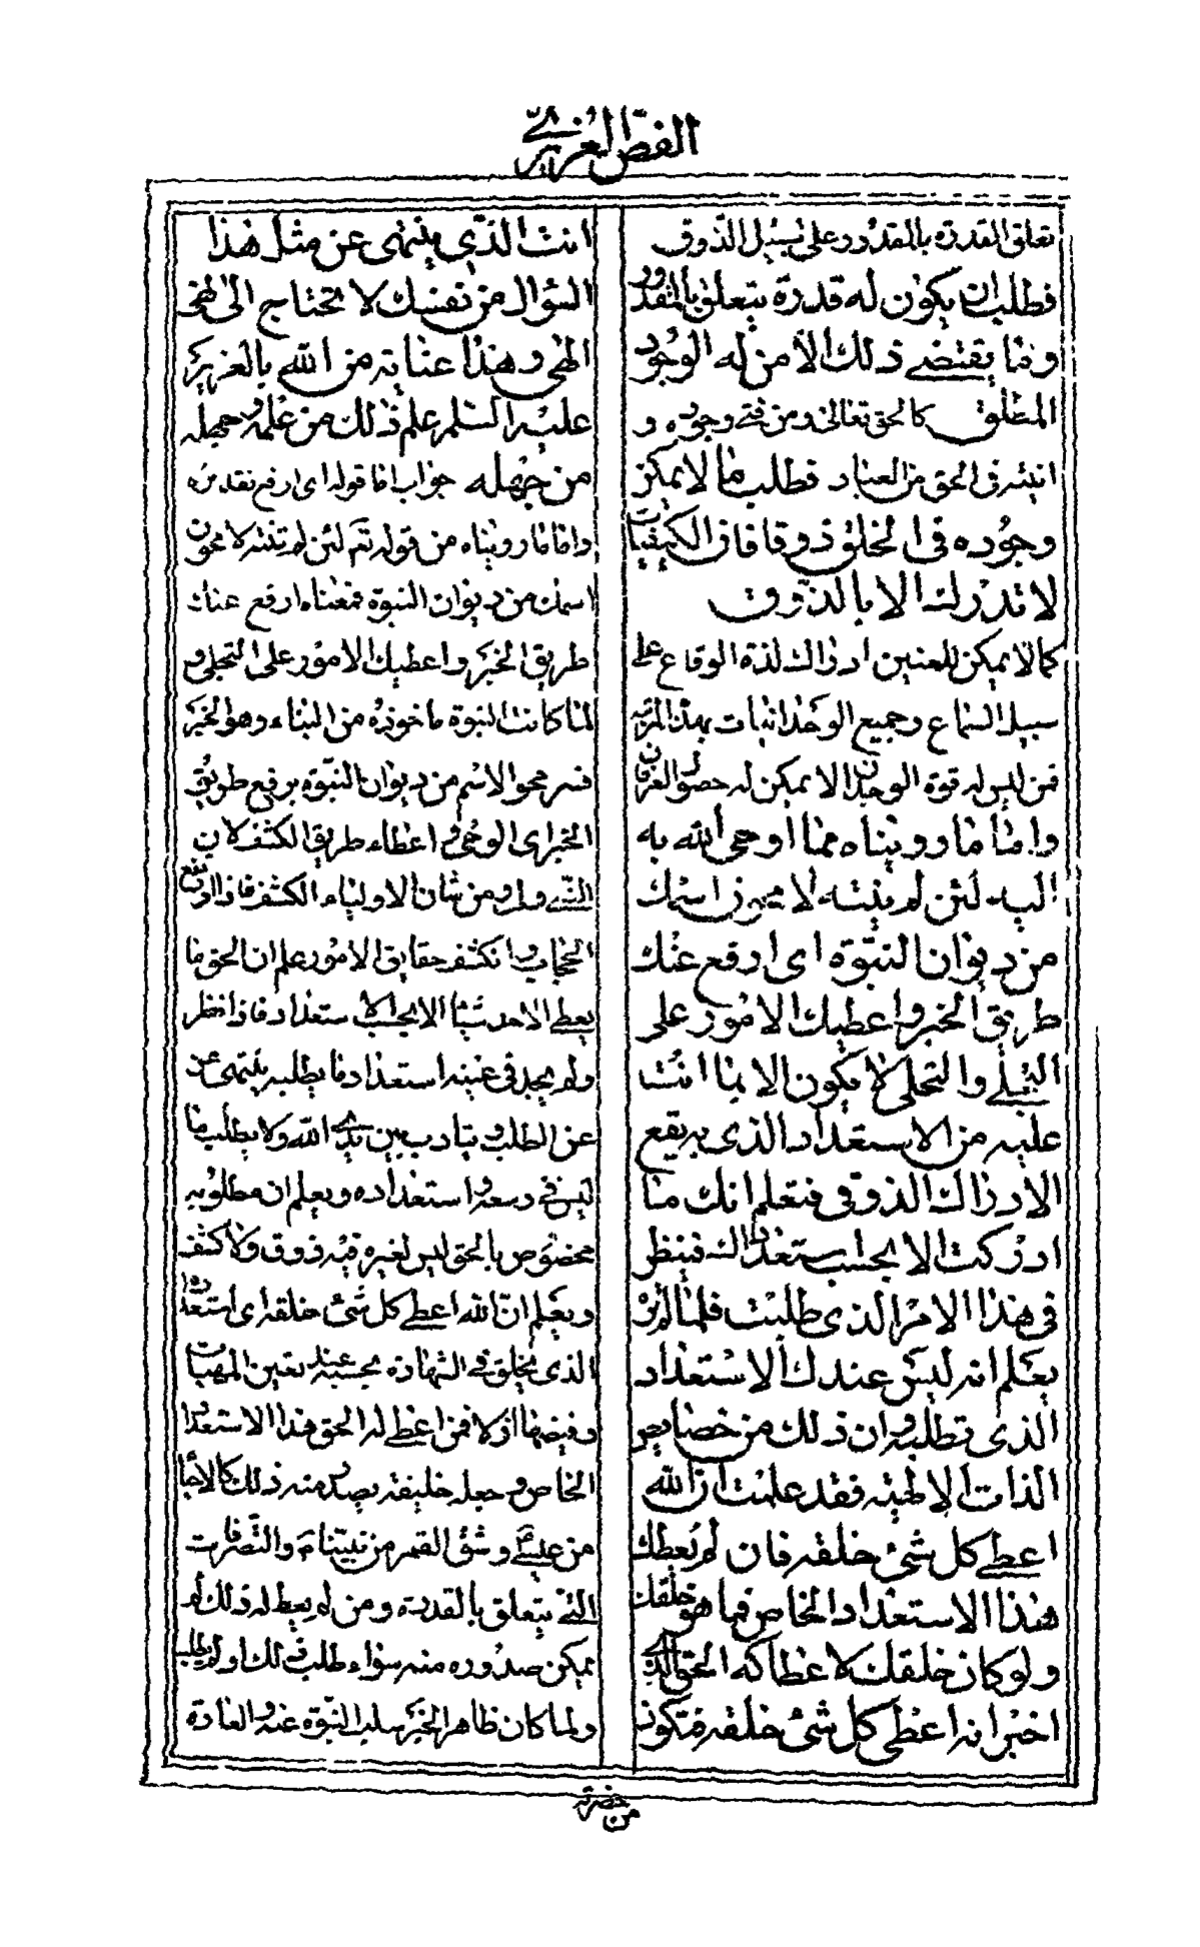 الفصّ العُزيريّ
تعلق القدرة بالمقدور على سبيل الذّوق
فطلب ان يكون له قدرة يتعلق بالمقدور
وما يقتضي ذلك الا من له الوجود
المطلق كالحق تعالى ومن فنى وجوده و
انيته فى الحق من العباد فطلب ما لا يمكن
وجوده فى الخلق ذوقا فان الكيفيات
لا تدرك الا بالذوق
كما لا يمكن للعنين ادراك لذة الوقاع على
سبيل السماع وجميع الوجدانيات بهذه المرتبه
فمن ليس له قوة الوجدان لا يمكن له حصول العرفان
واما ما رويناه مما اوحى الله به
اليه لئن لم ينته لا محون اسمك
من ديوان النبوّة اى ارفع عنك
طريق الخبر واعطيك الامور على
التجلي والتجلى لا يكون الا بما انت
عليه من الاستعداد الذى به يقع
الادراك الذوقى فتعلم انك ما
ادركت الا بحسب استعدادك فينظر
فى هذا الامر الذى طلبت فلما لم تر
يعلم انه ليس عندك الاستعداد
الذى تطلبه وان ذلك من خصايص
الذات الالهيه فقد علمت ان الله
اعطى كل شئ خلقه فان لم يعطك
هذا الاستعداد الخاص فما هو خلقك
ولو كان خلقك لاعطاكه الحق الذي
اخبر انه اعطى كل شئ خلقه فتكون
انت الذي ينتهى عن مثل هذا
السؤال من نفسك لا تحتاج الى نهى
الهى وهذا عناية من الله بالعزير
عليه السلم علم ذلك من علمه وجهله
من جهله جواب اما قوله اى ارفع تقديره
واما ما رويناه من قوله تم لئن لم تنته لا محون
اسمك من ديوان النبوة فمعناه ارفع عنك
طريق الخبر واعطيك الامور على التجلى و
لما كانت النبوة ماخوذه من النباء وهو الخبر
فسر محو الاسم من ديوان النبوّة برفع طريق
الخبر اى الوحى واعطاء طريق الكشف لان
النبي ولى ومن شان الاولياء الكشف فاذا ارتفع
الحجاب وانكشف حقايق الامور علم ان الحق ما
يعطي لاحد شيئا الا بحسب الاستعداد فاذا نظر
ولم يجد فى عينه استعداد ما يطلبه ينتهى
عن الطلب ويتادب بين يدي الله ولا يطلب ما
ليس في وسعه واستعداده ويعلم ان مطلوبه
مخصوص بالحق ليس لغيره فيه ذوق ولا كشف
ويعلم انّ الله اعطي كل شئ خلقه اى استعداده
الذى يخلق في الشهادة بحسبه عند تعين المهيات
وفيضها اولا فمن اعطى له الحق هذا الاستعداد
الخاص وجعله خليفة يصدر منه ذلك كالاحياء
من عيسي وشق القمر من نبيّنا ص والتصرفات
التي يتعلق بالقدرة ومن لم يعط له ذلك لم
يمكن صدوره منه سواء طلب ذلك او لم يطلب
ولما كان ظاهر الخبر سلب النبوّة عنه والعادة
من حضرته